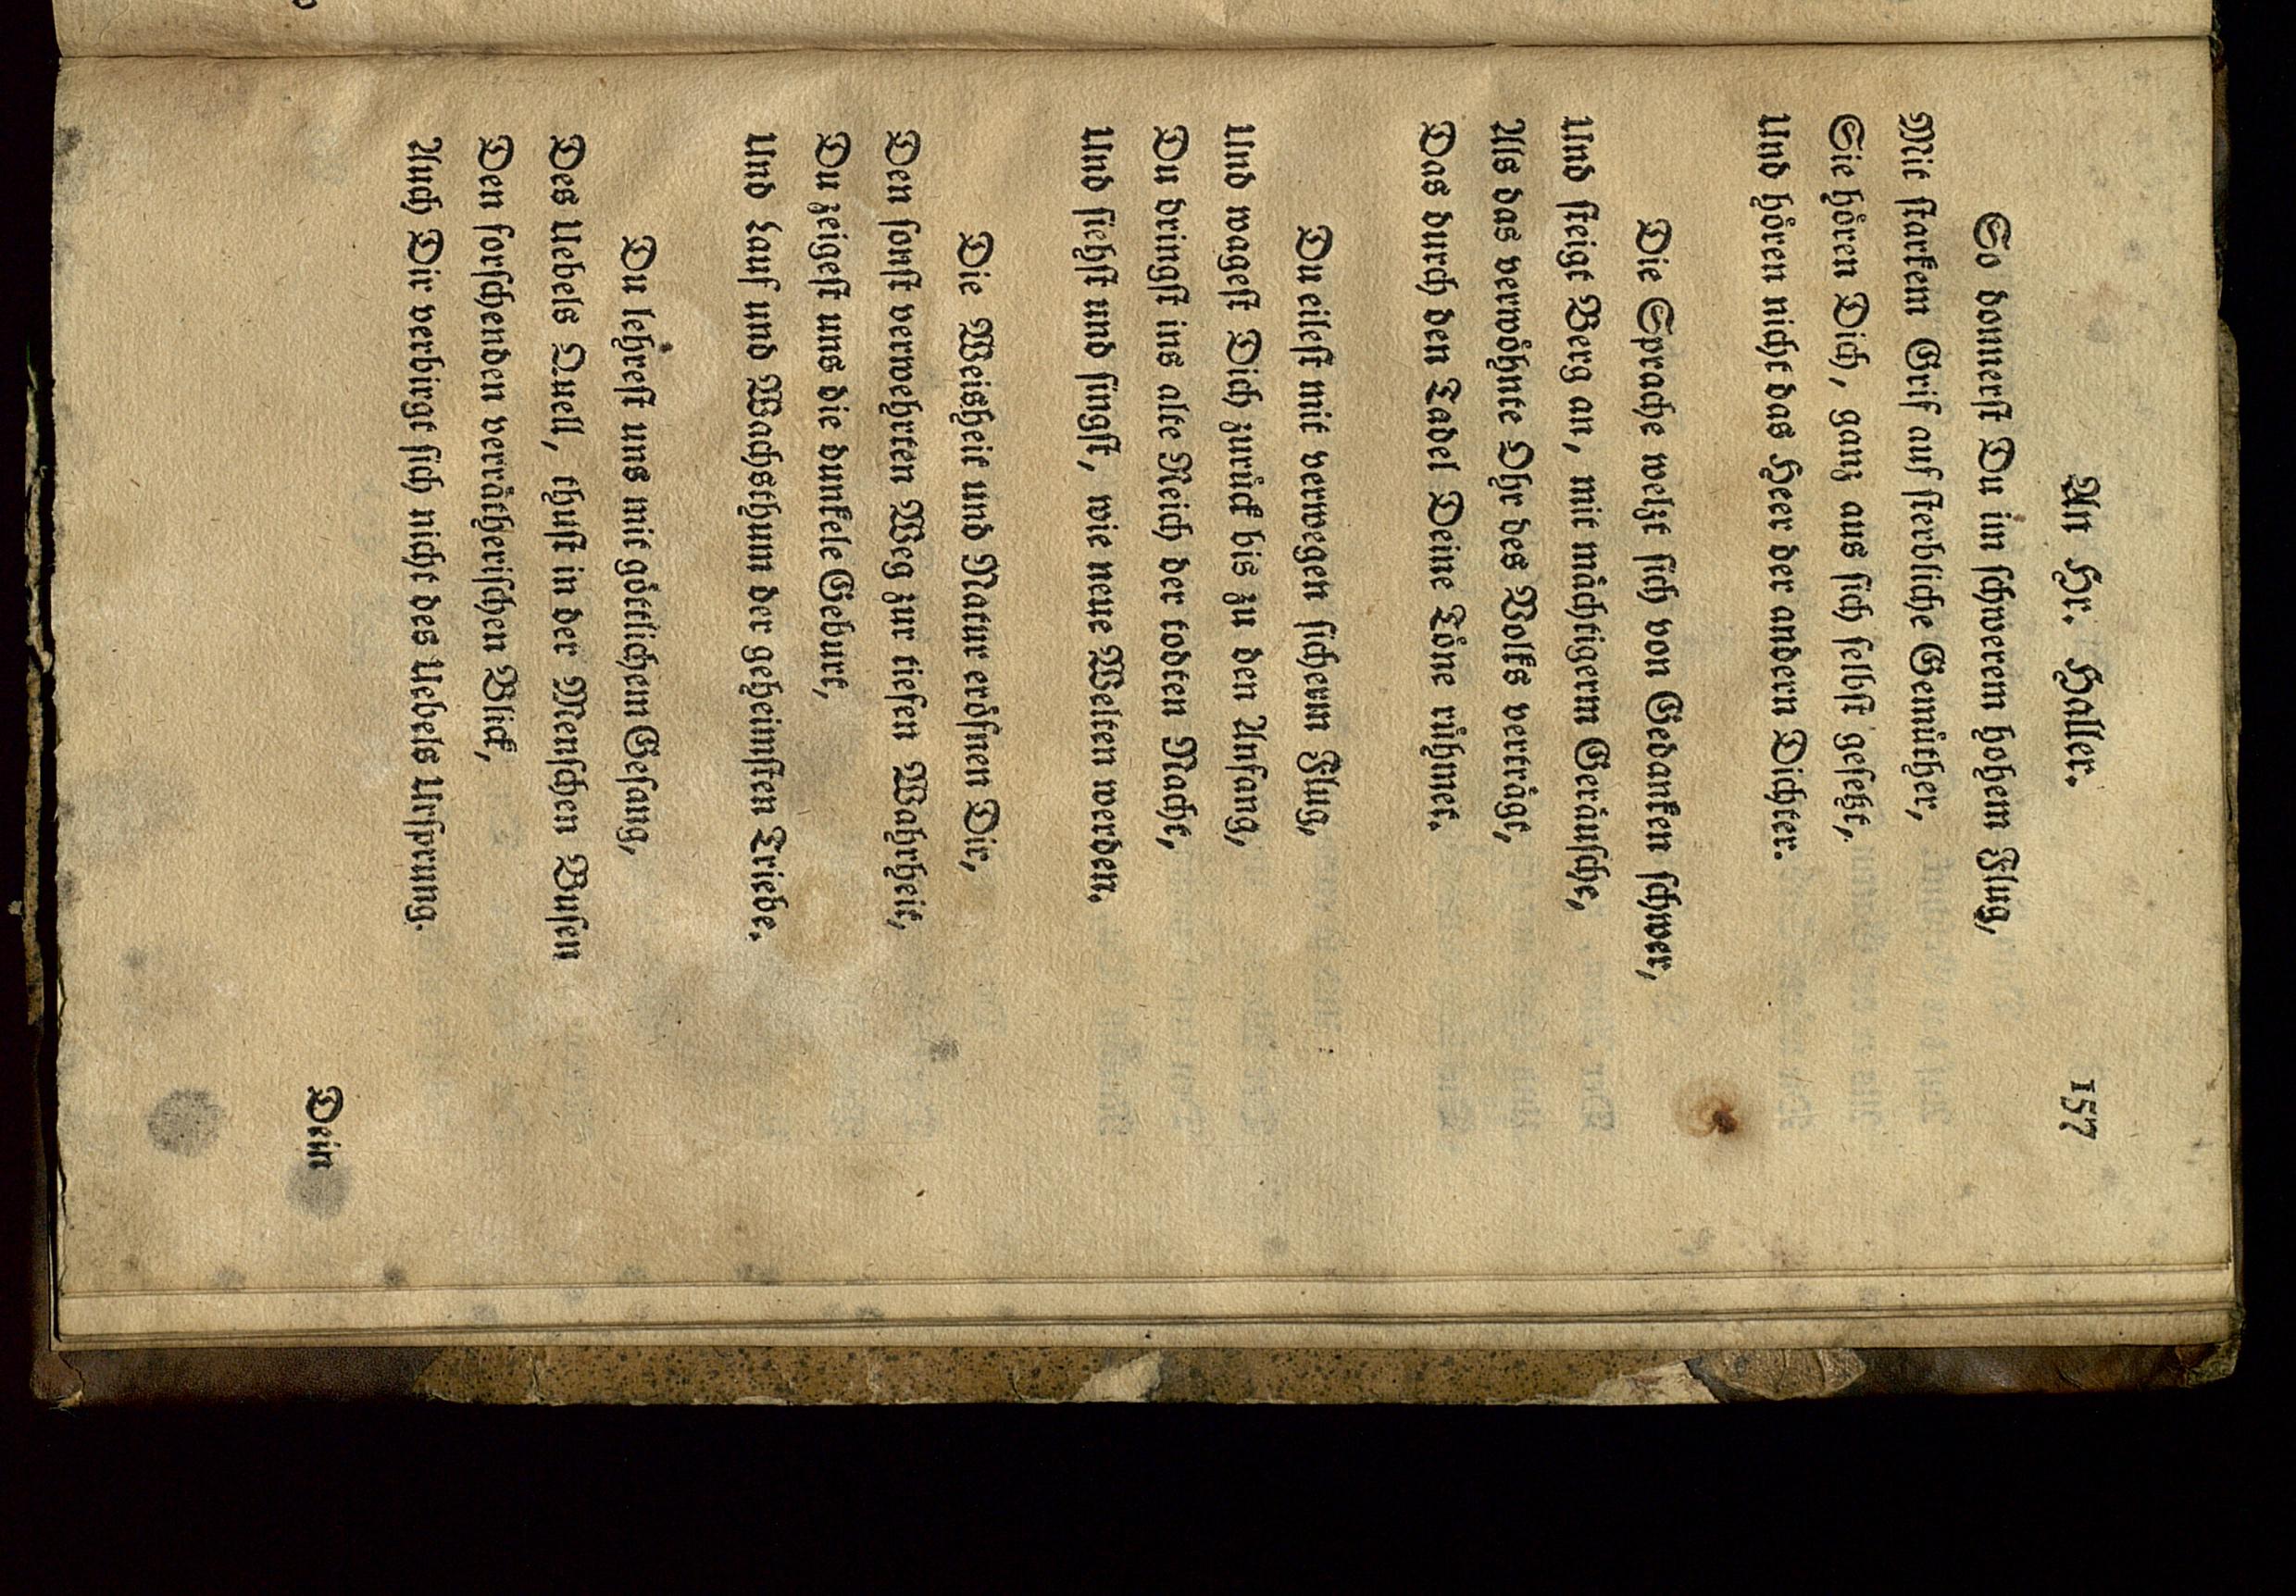 An Hr. Haller. 157
So donnerst Du im schwerem hohem Flug,
Mit starkem Grif auf sterbliche Gemüther,
Sie hören Dich, ganz aus sich selbst gesetzt,
Und hören nicht das Heer der andern Dichter.
Die Sprache welzt sich von Gedanken schwer,
Und steigt Berg an, mit mächtigerm Geräusche,
Als das verwöhnte Ohr des Volks verträgt,
Das durch den Tadel Deine Töne rühmet.
Du eilest mit verwegen sicherm Flug,
Und wagest Dich zurück bis zu den Anfang,
Du dringst ins alte Reich der todten Nacht,
Und siehst und singst, wie neue Welten werden.
Die Weisheit und Natur eröfnen Dir,
Den sonst verwehrten Weg zur tiefen Wahrheit,
Du zeigest uns die dunkele Geburt,
Und Lauf und Wachsthum der geheimsten Triebe.
Du lehrest uns mit göttlichem Gesang,
Des Uebels Quell, thust in der Menschen Busen
Den forschenden verrätherischen Blick,
Auch Dir verbirgt sich nicht des Uebels Ursprung.
Dein